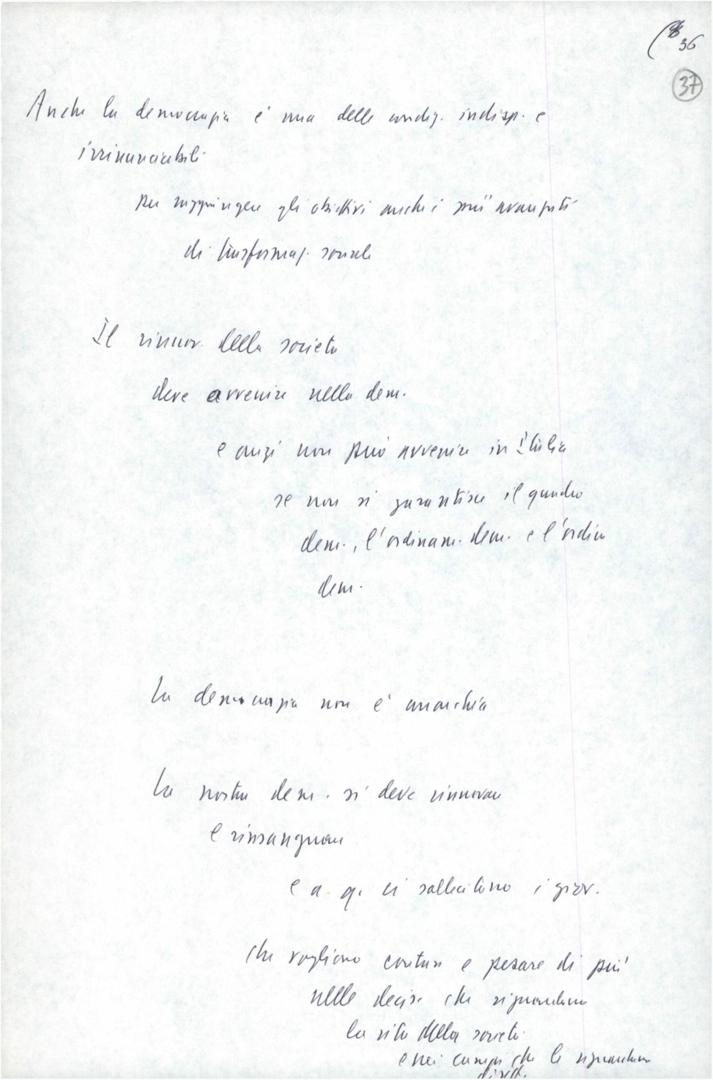 36
37
Anche la democrazia è una delle condiz. indisp. e
irrinunciabili
per raggiungere gli obiettivi anche i più avanzati
di trasformaz. sociale
Il rinnov. della società
deve avvenire nella dem.
e anzi non può avvenire in Italia
se non si garantisce il quadro
dem., l'ordinam. dem. e l'ordine
dem.
La democrazia non è anarchia
La nostra dem. si deve rinnovare
e rinsanguare
e a q. ci sollecitano i giov.
che vogliono contare e pesare di più
nelle decis. che riguardano
la vita della società
e nei campi che li riguardano
dirett.